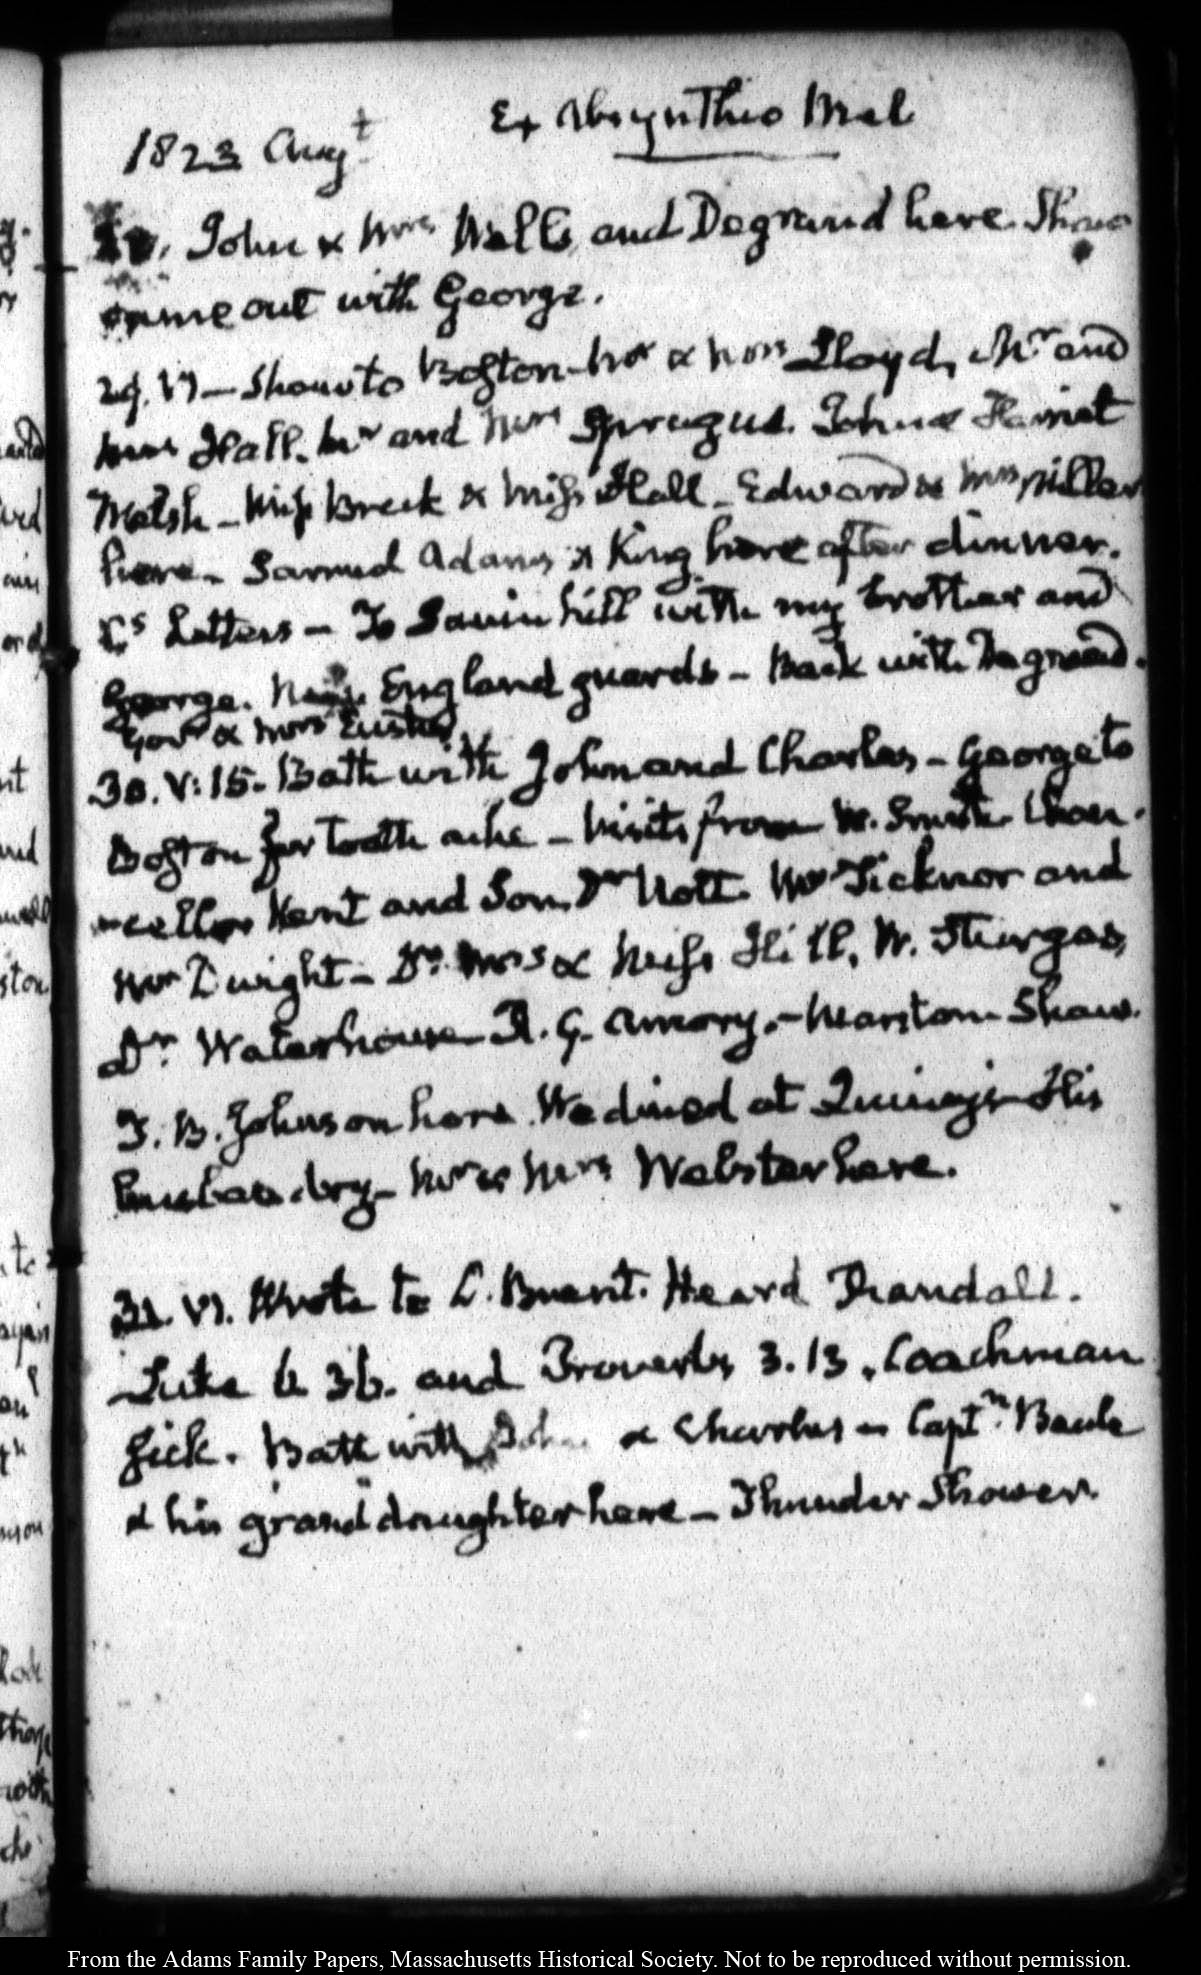 1823 Augt
Ex Absynthio Mel
John & Mrs Wells, and Degrand here. Shaw
came out with George.
29. VI — Shaw to Boston — Mr & Mrs Lloyd, Mr and
Mrs Hall. Mr and Mrs Sprague. John & Harriet
Welsh — Miss Breck & Miss Hall — Edward & Mrs Miller
here — Samuel Adams & King here after dinner.
Letters — To Savin hill with my brother and
George. New England guards — Back with Degrand.
Govr & Mrs Eustis
30. V:15. Bath with John and Charles — George to
Boston for tooth ache — Visits from W. Smith Chan-
cellor Kent and Son, Dr Nott. Mr Ticknor and
Mr Dwight — Dr Mrs & Miss Hill, W. Sturgis,
Dr Waterhouse — Marston — Shaw.
T. B. Johnson here. We dined at Quincy's — His
husbandry — Mr & Mrs Webster here.
31. VI. Wrote to Heard
Luke 6 36. and Proverbs 3.13. Coachman
sick. Bath with John & Charles — Captn Beale
& his granddaughter here — Thunder Shower
From the Adams Family Papers, Massachusetts Historical Society. Not to be reproduced without permission.